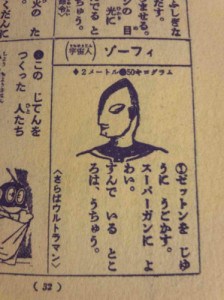 ふしぎな
だす。
ませる。
の目
光に
でる と
火の
た
(宇宙人) ゾーフィ
◆2メートル●50キログラム
①ゼットンを じゆ
うに うごかす。
スーパーガンに よ
わい。
すんで いる とこ
ろは、うちゅう。
〈さらばウルトラマン〉
●この じてんを
つくった 人たち
( 32 )